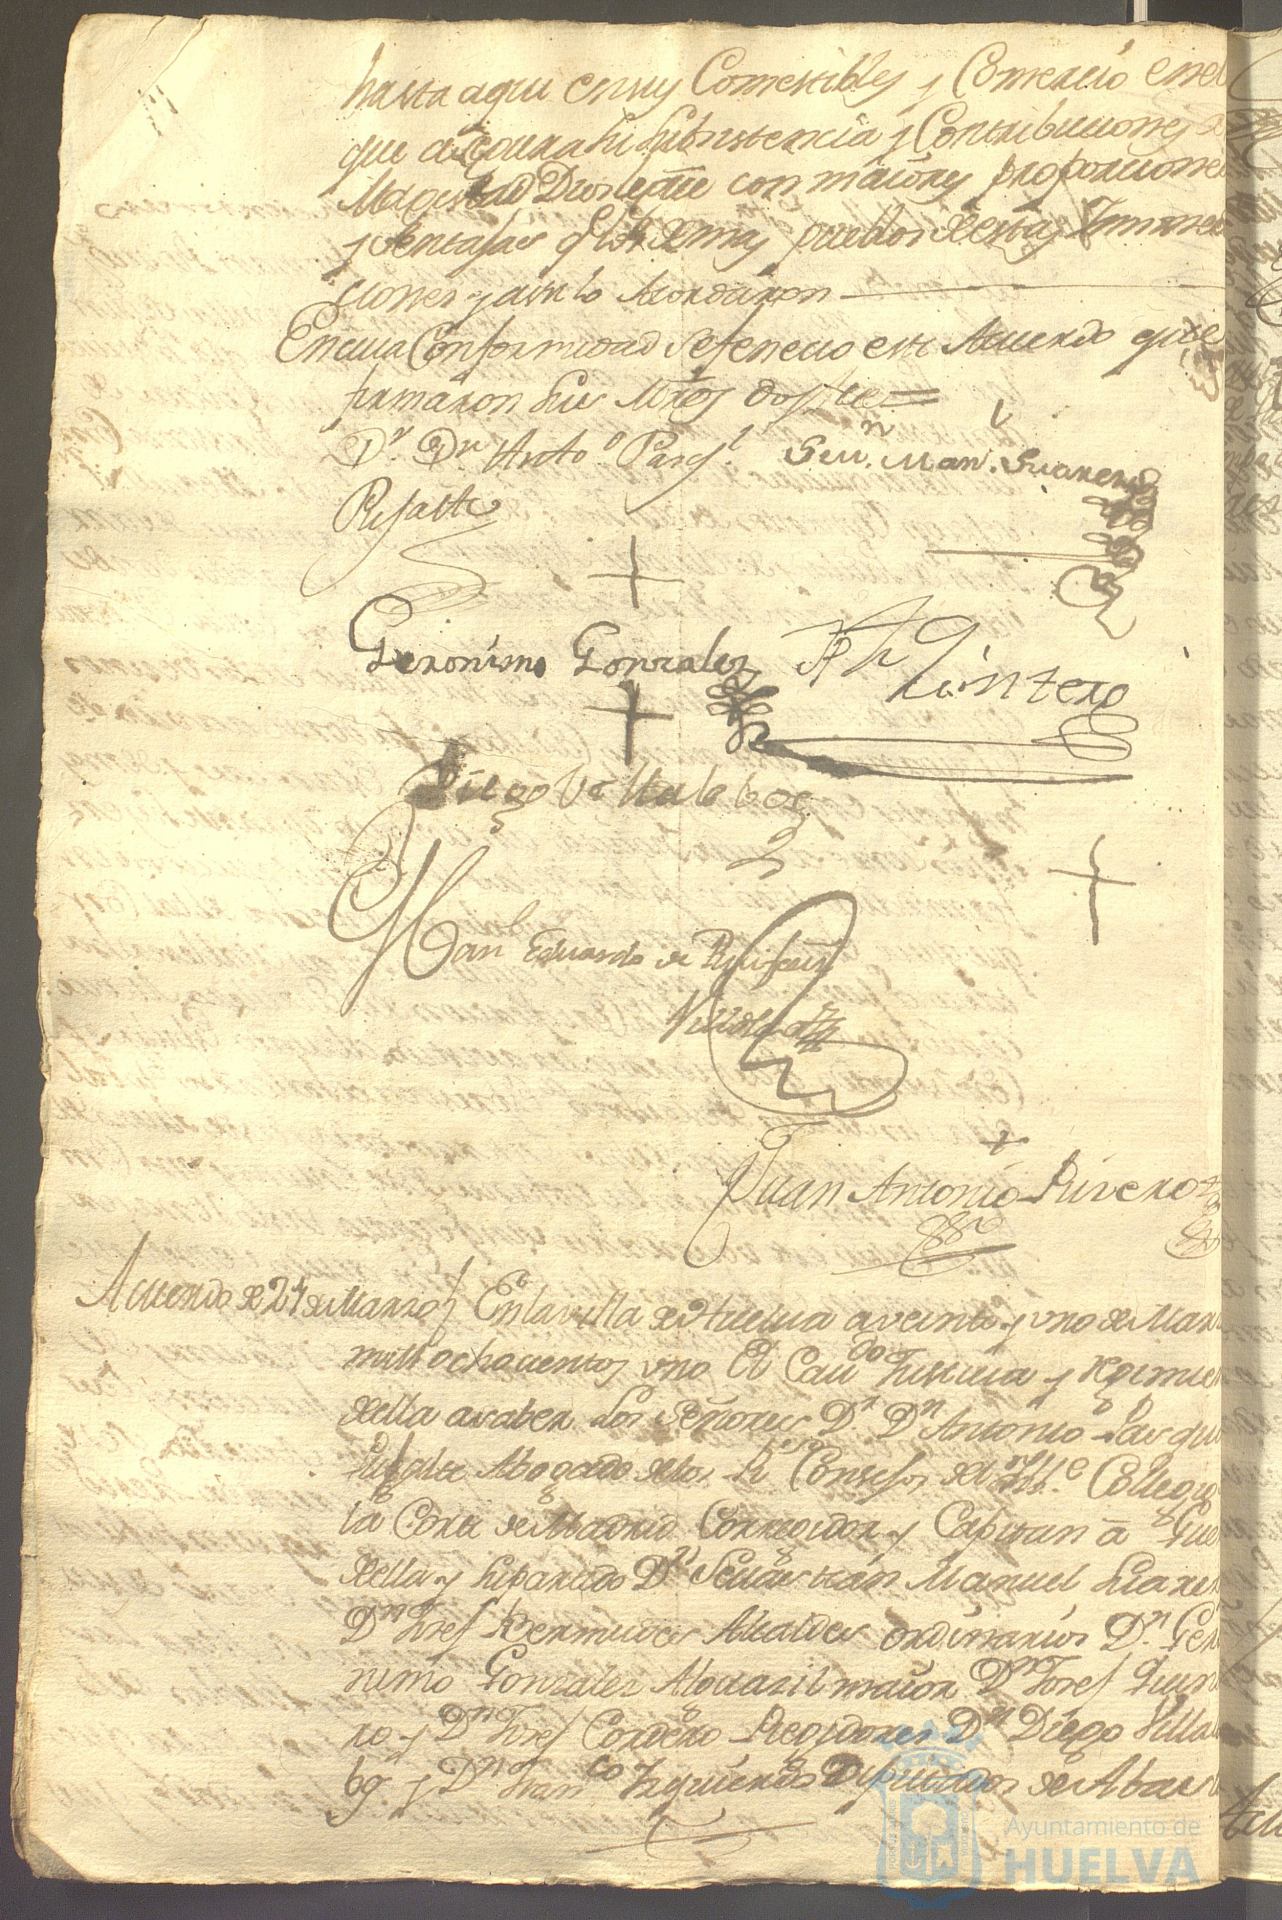 hasta aqui en sus Comestibles y Comercio en el
que asegura su subsistencia y Contribuciones
Magestad con maiores proporcione
y ventajas q. los demas pueblos de estas Inmme
ciones y asi lo Acordaron
En cuia Conformidad se fenecio este Acuerdo que
firmaron sus Mrds doy fee =
Dr. Dn Anto.º Pasql. Sevn. Manl. Suarez
Geronimo Gonzalez Jph Quintero
Diego Villalobos
Juan Eduardo de
Juan Antonio Rivero
Acuerdo de 21 de Marzo En la villa de Huelva a veinte y uno de Marz
mill ochocientos uno El Cavdo Justicia y regimien
della a saber los Señores Dr Dn Antonio Pasqu
Abogado de los Rs Consejos del Ille Collegio
la Corte de Madrid Corregidor y Capitan a Gue
della y su Partido Dn Sevastian Manuel Suarez
Dn Josef Bermudez Alcaldes ordinarios Dn Gero
nimo Gonzalez Alguazil maior Dn Josef Quin
ro y Dn Josef Cordero Regidores Dn Diego Villa
bos y Dn Franco Izquierdo Diputados de Abas
Ayuntamiento de
HUELVA